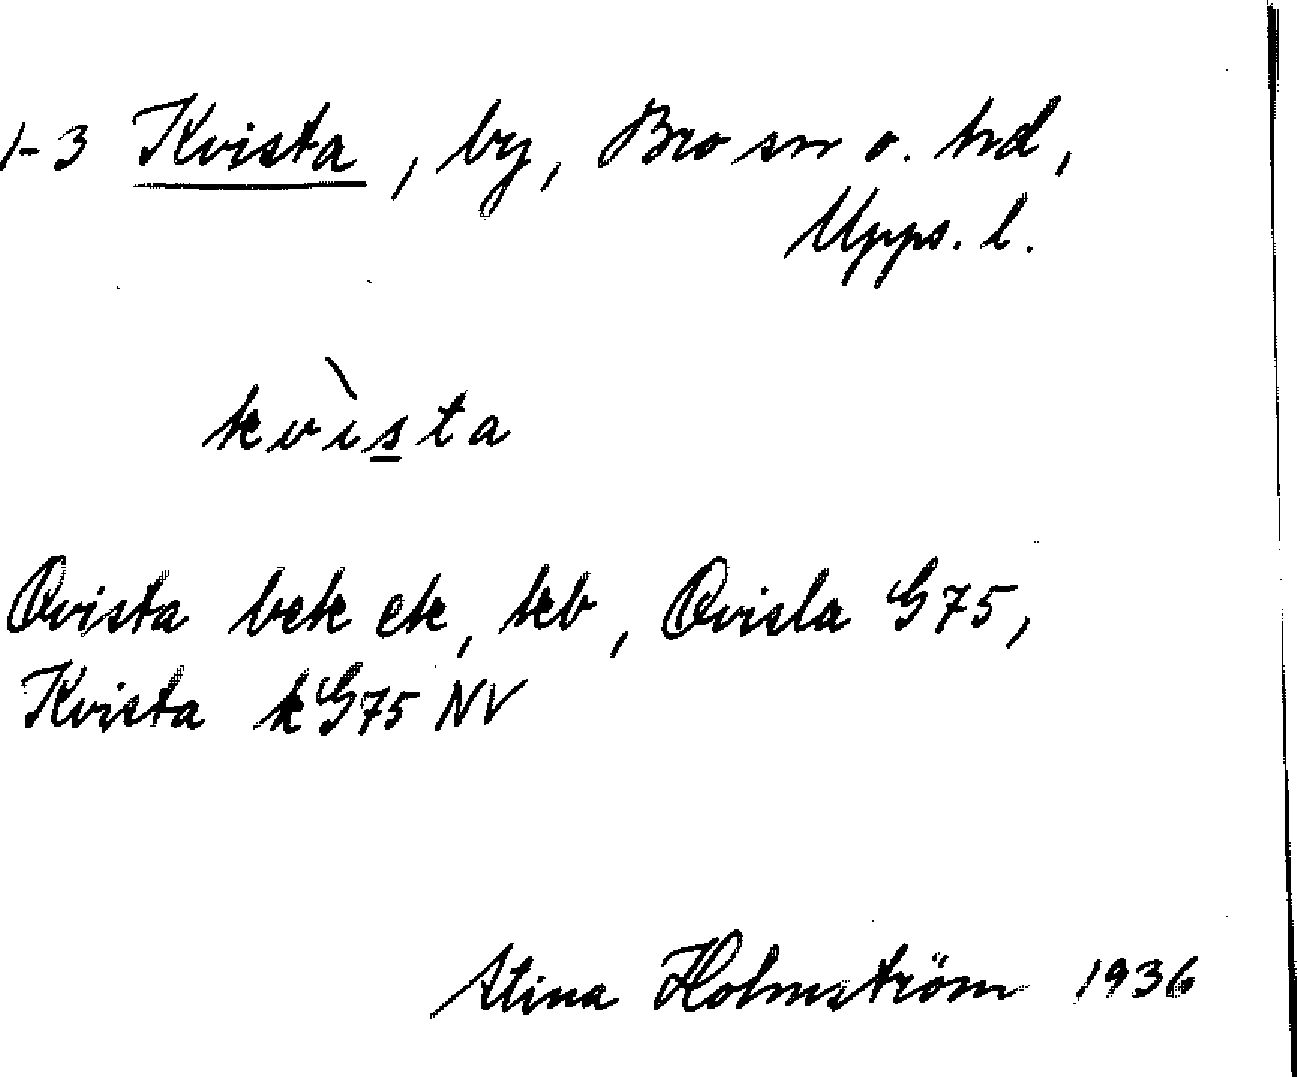 1-3 Kvista, by, Bro sn o. hd,
Upps. l.
kvìsta
Qvista bek ek, kb, Qvisla G75,
Kvista kG75 NV
Stina Holmström 1936